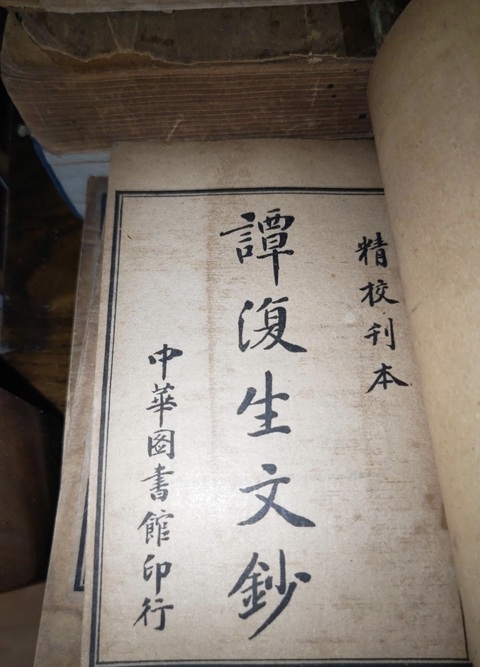 精校刋本
譚復生文鈔
中華圖書館印行